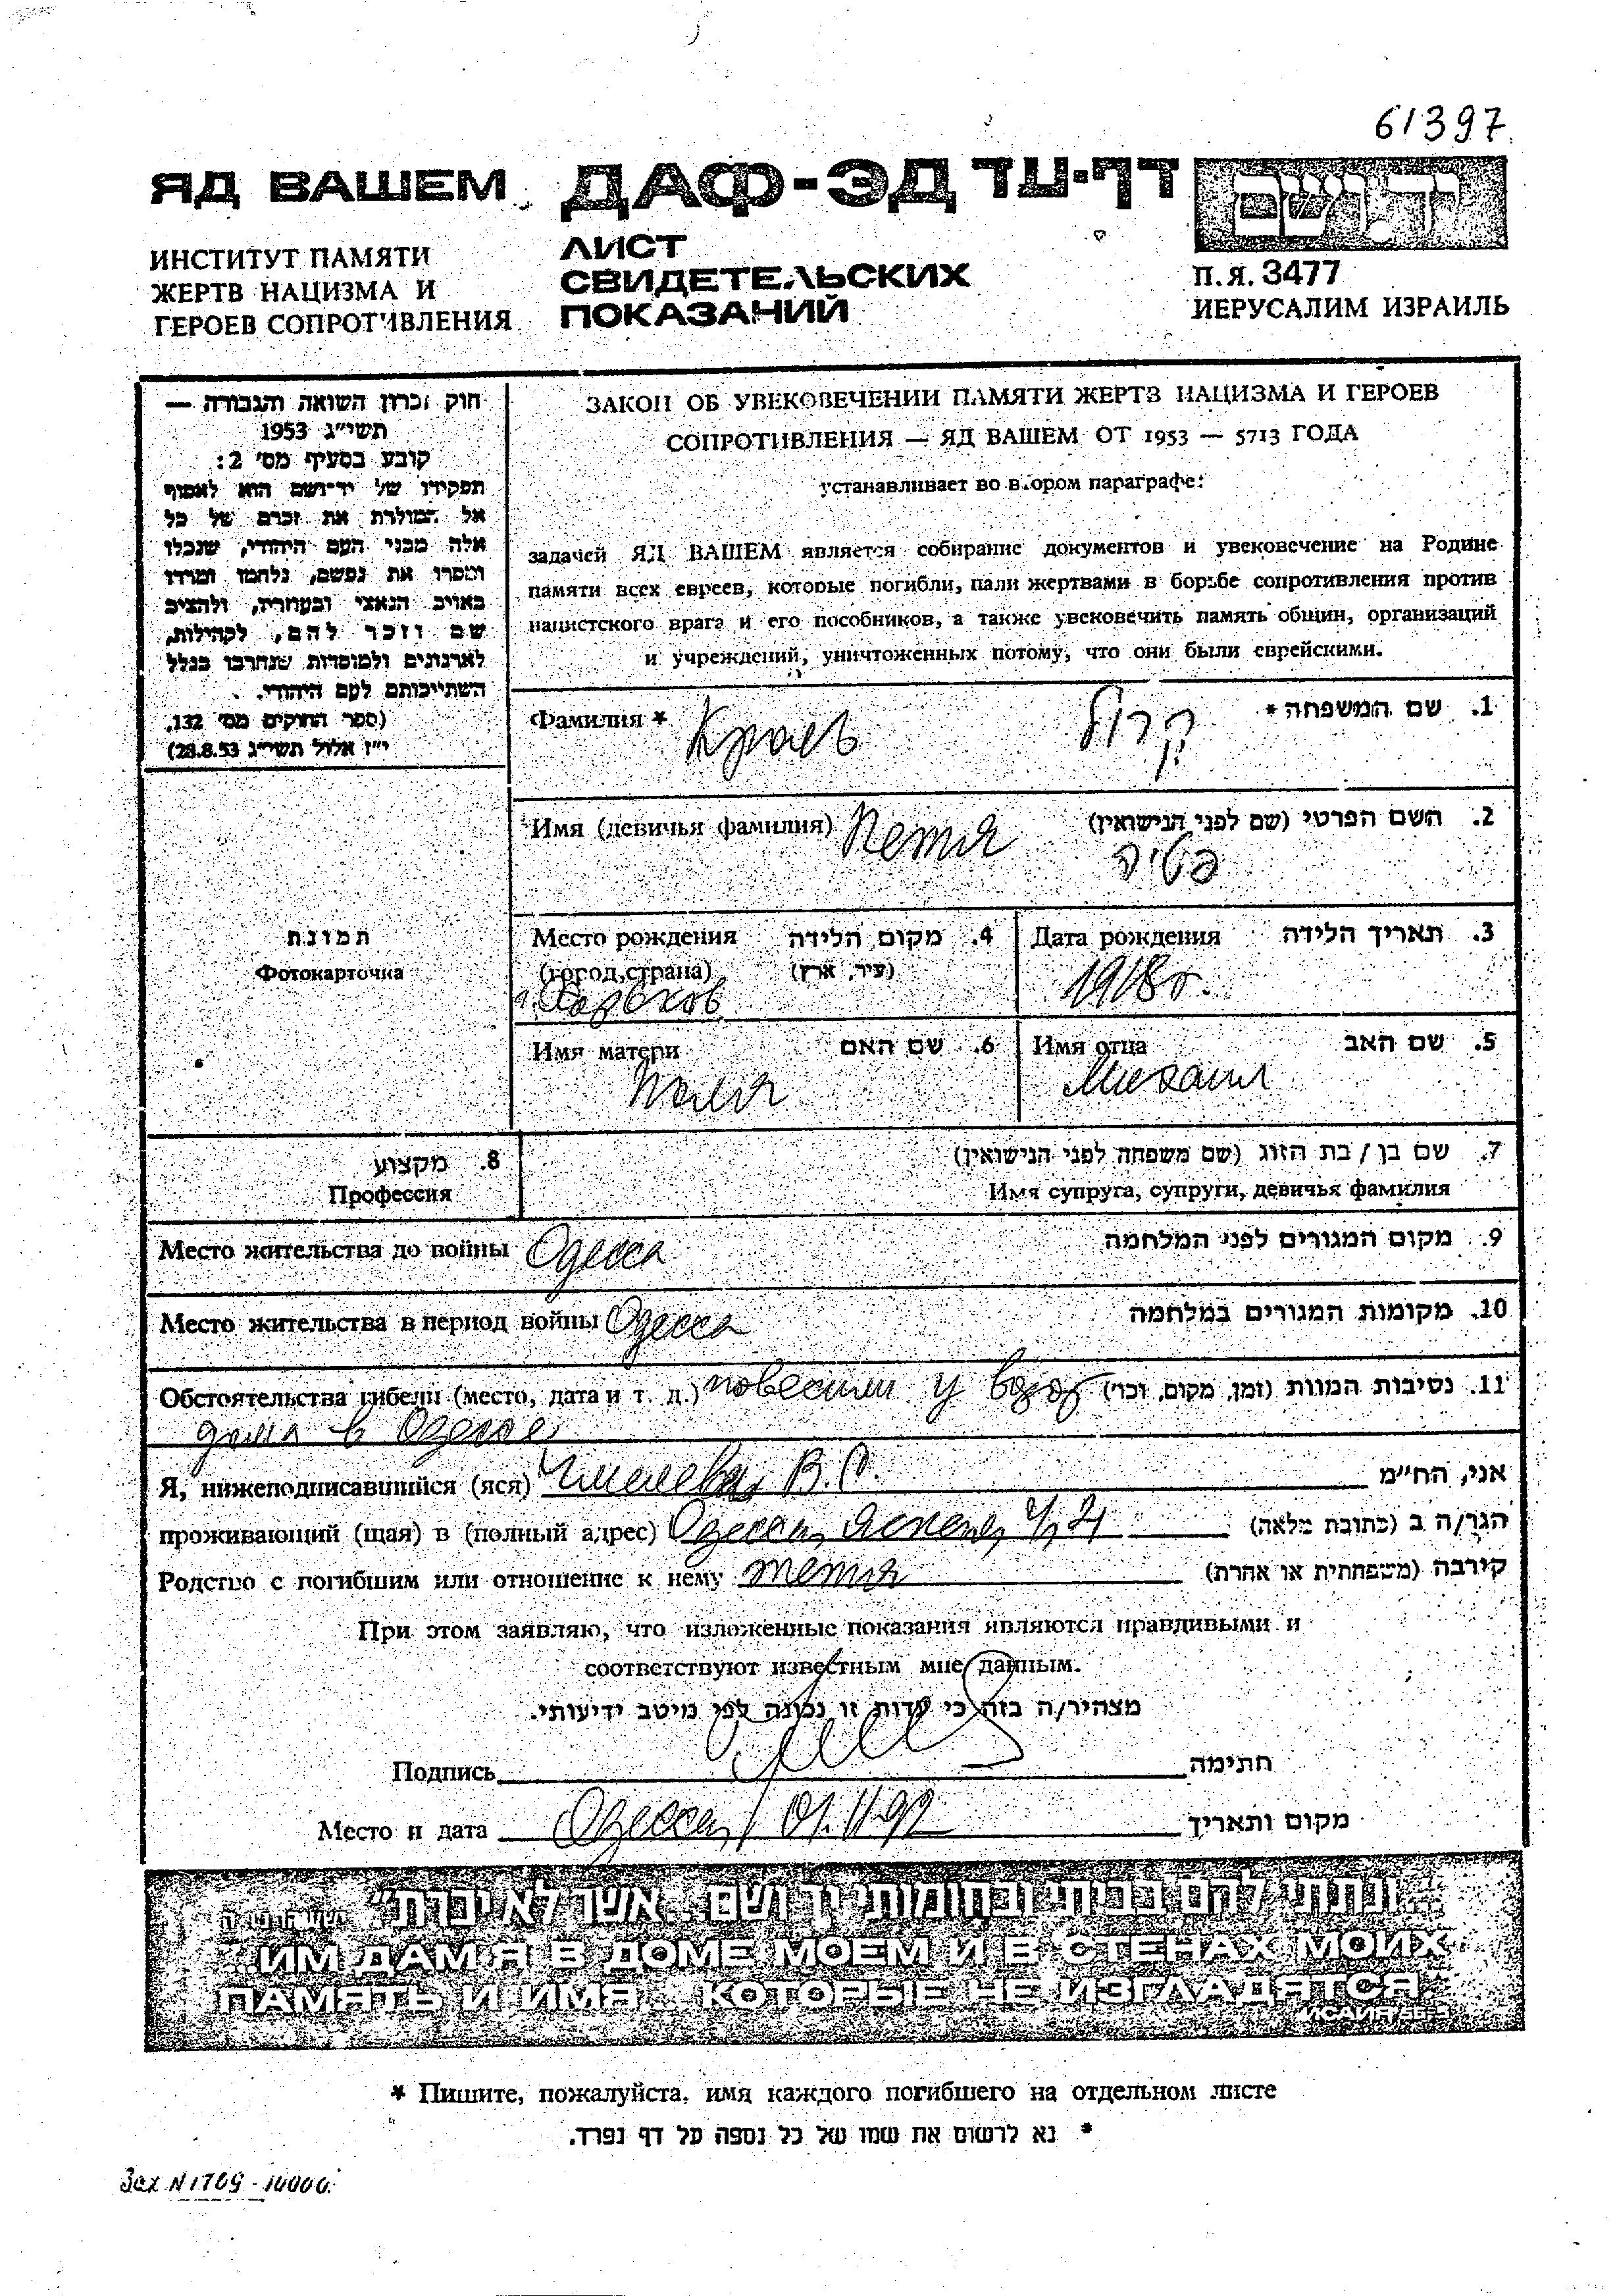 61397
ЯД ВАШЕМ
ДАФ-ЭД דף-עד
יד ושם
ИНСТИТУТ ПАМЯТИ
ЖЕРТВ НАЦИЗМА И
ГЕРОЕВ СОПРОТИВЛЕНИЯ
ЛИСТ
СВИДЕТЕЛЬСКИХ
ПОКАЗАНИЙ
П.Я. 3477
ИЕРУСАЛИМ ИЗРАИЛЬ
חוק זכרון השואה והגבורה —
תשי״ג 1953
קובע בסעיף מס׳ 2:
תפקידו של יד-ושם הוא לאסוף
אל המולדת את זכרם של כל
אלה מבני העם היהודי, שנפלו
ומסרו את נפשם, נלחמו ומרדו
באויב הנאצי ובעוזריו, ולהציב
שם וזכר להם, לקהילות,
לארגונים ולמוסדות שנחרבו בגלל
השתייכותם לעם היהודי.
(ספר החוקים מס׳ 132,
י״ז אלול תשי״ג 28.8.53)
ЗАКОН ОБ УВЕКОВЕЧЕНИИ ПАМЯТИ ЖЕРТВ НАЦИЗМА И ГЕРОЕВ
СОПРОТИВЛЕНИЯ — ЯД ВАШЕМ ОТ 1953 — 5713 ГОДА
устанавливает во втором параграфе:
задачей ЯД ВАШЕМ является собирание документов и увековечение на Родине
памяти всех евреев, которые погибли, пали жертвами в борьбе сопротивления против
нацистского врага и его пособников, а также увековечить память общин, организаций
и учреждений, уничтоженных потому, что они были еврейскими.
Фамилия * קרול 1. שם המשפחה *
Имя (девичья фамилия) Петя 2. השם הפרטי (שם לפני הנישואין)
פטיה
תמונת
Фотокарточка
Место рождения 4. מקום הלידה
(город, страна) (עיר, ארץ)
г. Харьков
Дата рождения 3. תאריך הלידה
1918г.
Имя матери 6. שם האם
Имя отца 5. שם האב
Михаил
8. מקצוע
Профессия
7. שם בן / בת הזוג (שם משפחה לפני הנישואין)
Имя супруга, супруги, девичья фамилия
Место жительства до войны Одесса 9. מקום המגורים לפני המלחמה
Место жительства в период войны Одесса 10. מקומות המגורים במלחמה
Обстоятельства гибели (место, дата и т. д.) повесили у ворот 11. נסיבות המוות (זמן, מקום, וכו׳)
дома в Одессе
Я, нижеподписавшийся (яся) אני, הח״מ
проживающий (щая) в (полный адрес) Одесса, הגר/ה ב (כתובת מלאה)
Родство с погибшим или отношение к нему тетя קירבה (משפחתית או אחרת)
При этом заявляю, что изложенные показания являются правдивыми и
соответствуют известным мне данным.
מצהיר/ה בזה כי עדות זו נכונה לפי מיטב ידיעותי.
Подпись חתימה
Место и дата Одесса, 01.11.92 מקום ותאריך
״...ונתתי להם בביתי ובחומותי יד ושם... אשר לא יכרת״
„ИМ ДАМ Я В ДОМЕ МОЕМ И В СТЕНАХ МОИХ
ПАМЯТЬ И ИМЯ... КОТОРЫЕ НЕ ИЗГЛАДЯТСЯ."
* Пишите, пожалуйста, имя каждого погибшего на отдельном листе
* נא לרשום את שמו של כל נספה על דף נפרד.
Зак N 1709 - 10000.